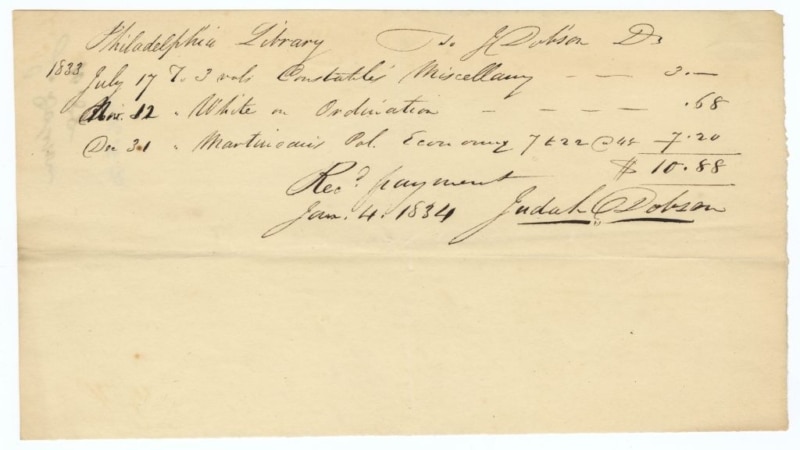 Philadelphia Library To J Dobson Dr
1833
July 17 To 3 vols Constable's Miscellany — — 3.—
Nov. 12 " White on Ordination — — — — — .68
Dec 31 " Martineau's Pol. Economy 7 to 22 @ 45 7.20
$ 10.88
Recd payment
Jan. 4. 1834 Judah Dobson